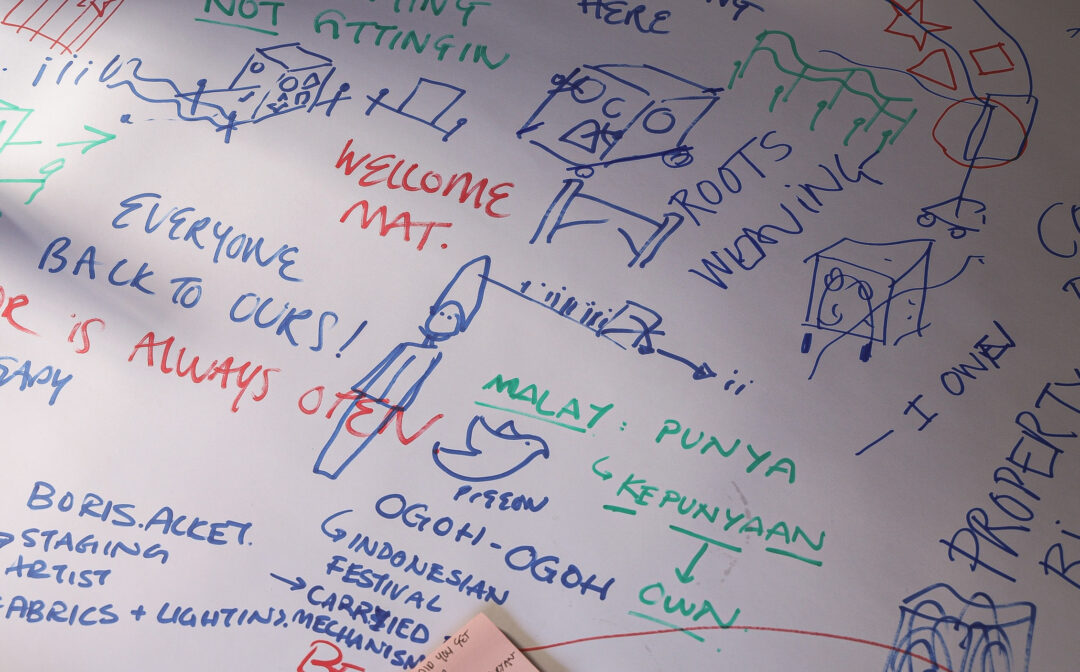 NOT FITTING IN
HERE
WELCOME
MAT.
ROOTS
WEAVING
EVERYONE
BACK TO OURS!
IS ALWAYS OPEN
I OWN
PROPERTY
MALAY: PUNYA
KEPUNYAAN
OWN
PIGEON
OGOH-OGOH
INDONESIAN
FESTIVAL
CARRIED
MECHANISM
BORIS.ACKET.
STAGING
ARTIST
FABRICS + LIGHTING.